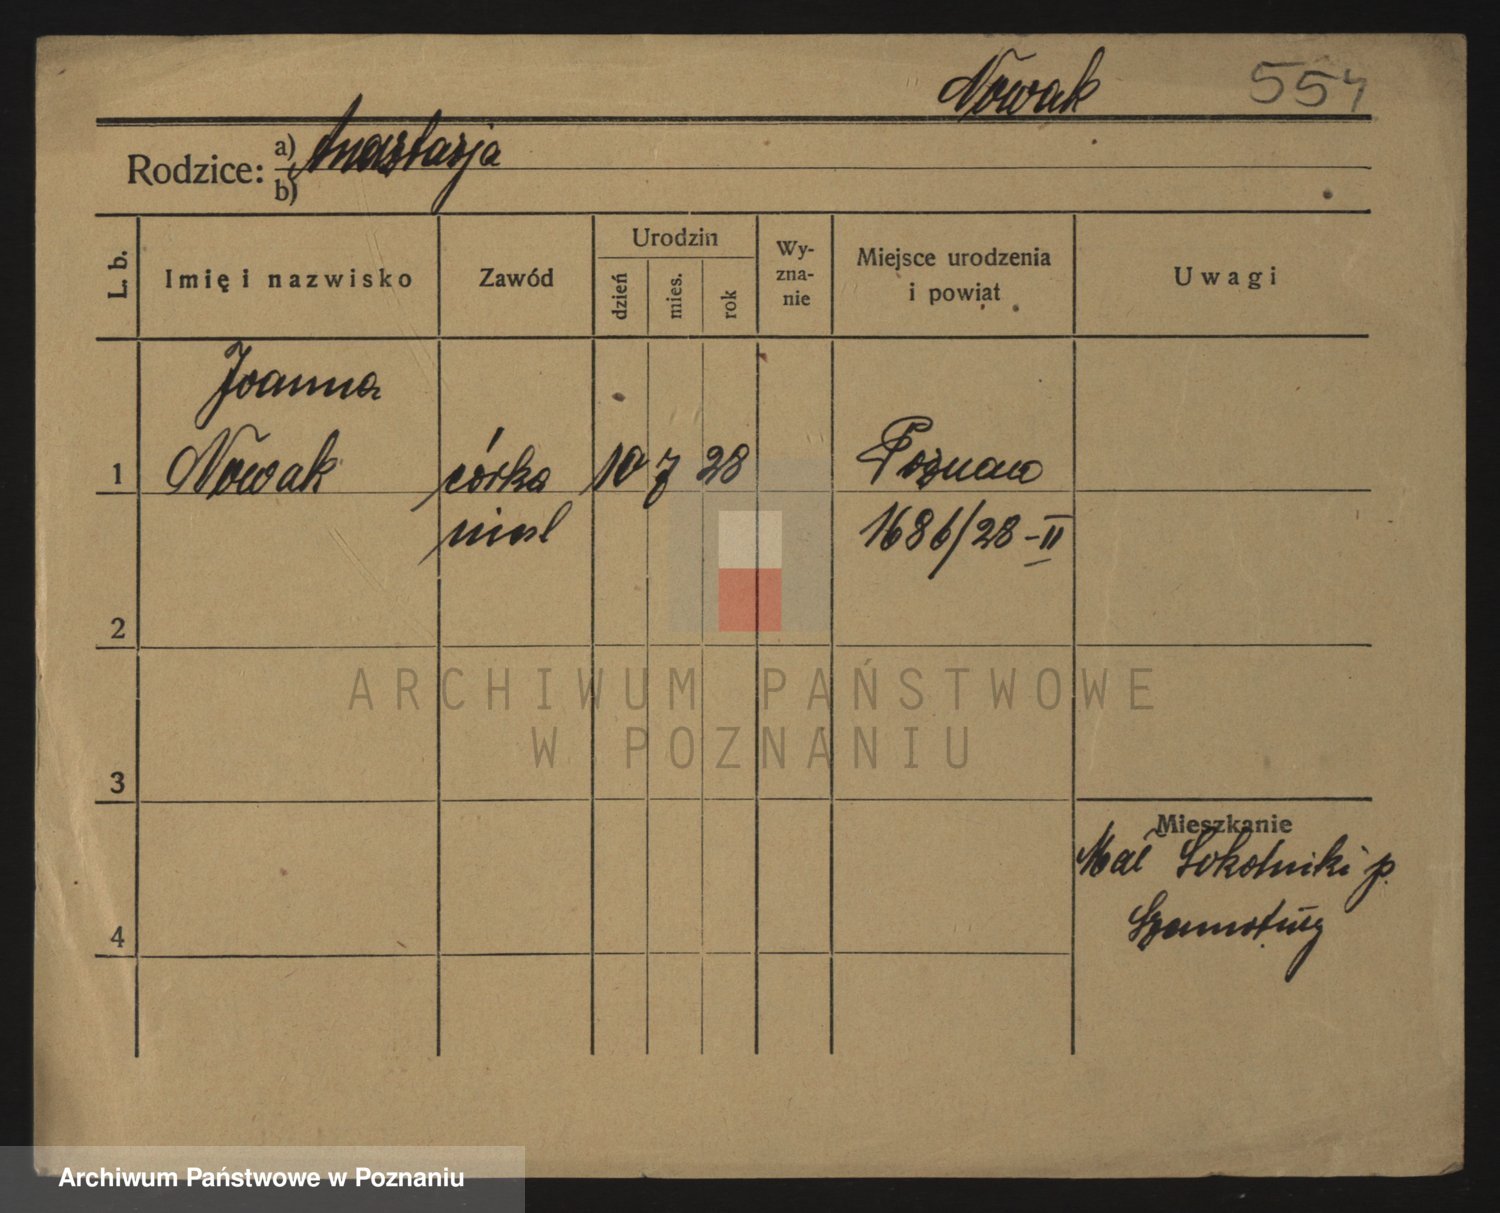 Nowak 554
Rodzice: a) Anastazja
b)
L. b. Imię i nazwisko Zawód Urodzin dzień mies. rok Wyzna-nie Miejsce urodzenia i powiat Uwagi
Joanna
1 Nowak córka 10 7 28 Poznań
nieśl 1686/28-II
2
ARCHIWUM PAŃSTWOWE
W POZNANIU
3
Mieszkanie
Mał Sokolniki p.
4 Szamotuły
Archiwum Państwowe w Poznaniu